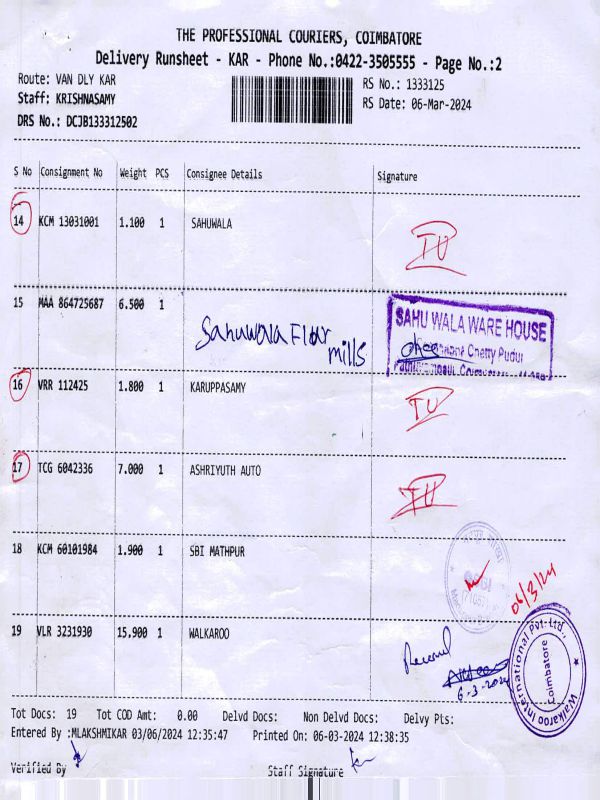 THE PROFESSIONAL COURIERS, COIMBATORE
Delivery Runsheet - KAR - Phone No.:0422-3505555 - Page No.:2
Route: VAN DLY KAR RS No.: 1333125
Staff: KRISHNASAMY RS Date: 06-Mar-2024
DRS No.: DCJB133312502
S No Consignment No Weight PCS Consignee Details Signature
14 KCM 13031001 1.100 1 SAHUWALA IU
15 MAA 864725687 6.500 1
Sahuwala Flour
mills
SAHU WALA WARE HOUSE
Chetty Pudur
16 VRR 112425 1.800 1 KARUPPASAMY IU
17 TCG 6042336 7.000 1 ASHRIYUTH AUTO IU
18 KCM 60101984 1.900 1 SBI MATHPUR
06/3/24
19 VLR 3231930 15.900 1 WALKAROO
6-3-2024
Walkaroo International Pvt-Ltd.,
Coimbatore
Tot Docs: 19 Tot COD Amt: 0.00 Delvd Docs: Non Delvd Docs: Delvy Pts:
Entered By :MLAKSHMIKAR 03/06/2024 12:35:47 Printed On: 06-03-2024 12:38:35
Verified By Staff Signature